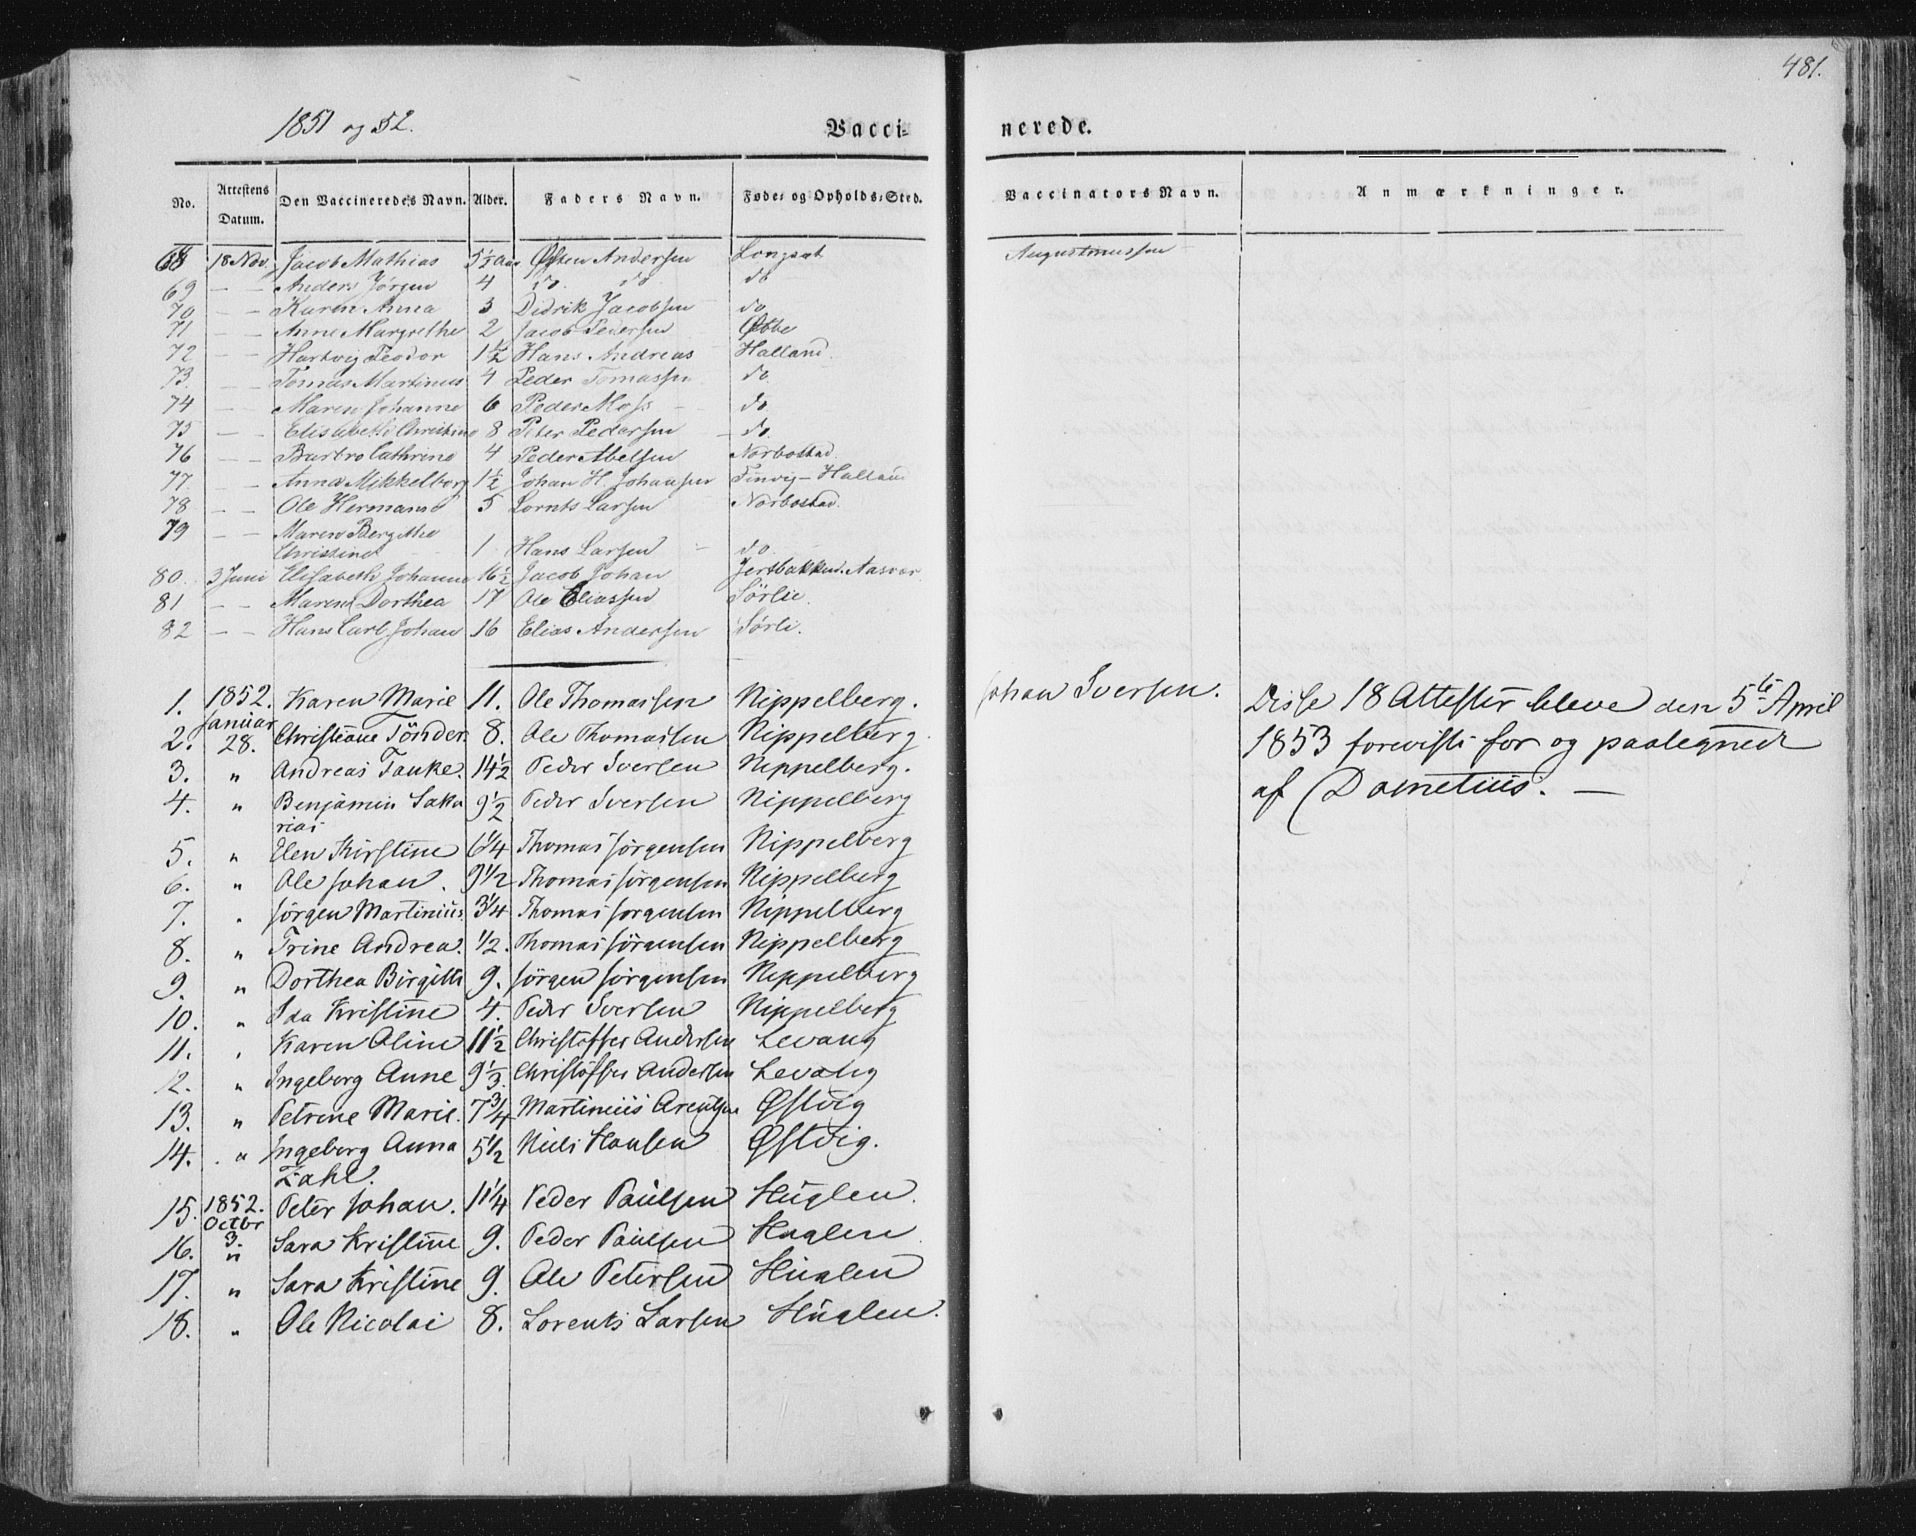 481.
1851 og 52.
Vacci-
nerede.
No. Attestens Datum. Den Vaccineredes Navn. Alder. Faders Navn. Føde- og Opholds-Sted. Vaccinators Navn. Anmærkninger.
68 18 Nov. Jacob Mathias 5½ Aar Østen Andersen Augustinussen
69 — — Anders Jørgen 4 do. do. do
70 — — Karen Anna 3 Didrik Jacobsen do
71 — — Anne Margrethe 2 Jacob Pedersen
72 — — Hartvig Peodor 1½ Hans Andreas Halland.
73. — — Tomas Martinus 4 Peder Tomassen do
74 — — Maren Johanne 6 Peder Moss do
75 — — Elisabeth Christine 8 Peter Pedersen do.
76 — — Barbro Cathrine 4 Peder Abelsen Norbostad.
77 — — Anna Mikkelborg 1½ Johan H. Johansen Finvig – Halland
78 — — Ole Hermann 5 Lornts Larsen Norbostad.
79 — — Maren Bergithe
Christine 1 Hans Larsen do.
80. 3 Juni Elisabeth Johanne 16½ Jacob Johan Aasvær.
81 — — Maren Dorthea 17 Ole Eliassen Sørlie.
82 — — Hans Carl Johan 16 Elias Andersen Sørli.
1. 1852. Karen Marie 11. Ole Thomassen Nippelberg. Johan Iversen. Disse 18 Attester bleve den 5te April
Januar
2. 28. Christiane Tönder. 8. Ole Thomassen Nippelberg. 1853 foreviste for og paategnet
3. " Andreas Tanke. 14½ Peder Iversen Nippelberg. af Dometius. —
4. " Benjamin Saka 9½ Peder Iversen Nippelberg
rias
5. " Elen Kirstine 6¼ Thomas Jörgensen Nippelberg
6. " Ole Johan. 9½ Thomas Jörgensen Nippelberg
7. " Jörgen Martinius. 3¼ Thomas Jorgensen Nippelberg
8. " Trine Andrea. ½. Thomas Jörgensen Nippelberg
9. " Dorthea Birgitte 9. Jörgen Jörgensen Nippelberg
10. " Ida Kristine 4. Peder Iversen Nippelberg
11. " Karen Oline 11½ Christoffer Andersen Levang
12. " Ingeborg Anne 9⅓. Christöffer Andersen Levang
13. " Petrine Marie. 7¾ Martinius Arentsen Østvig
14. " Ingeborg Anna 5½ Niels Hansen Østvig.
Zahl.
15. 1852. Peter Johan. 11¼ Peder Paulsen Huglen.
Octbr
3.
16. " Sara Kristine 9. Peder Paulsen Huglen
17. " Sara Kristine 9. Ole Petersen Huglen
18. " Ole Nicolai 8. Lorents Larsen Huglen.